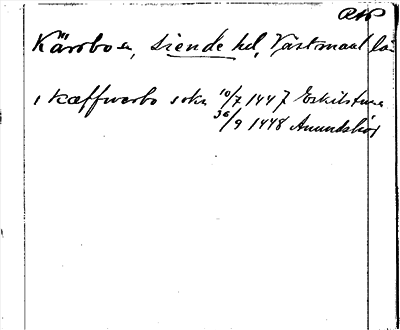 RAP
Kärrbo sn, Siende hd, Västmanl. län
i Kæffwarbo sokn 10/7 1447 Eskilstuna
30/9 1448 Anundshög